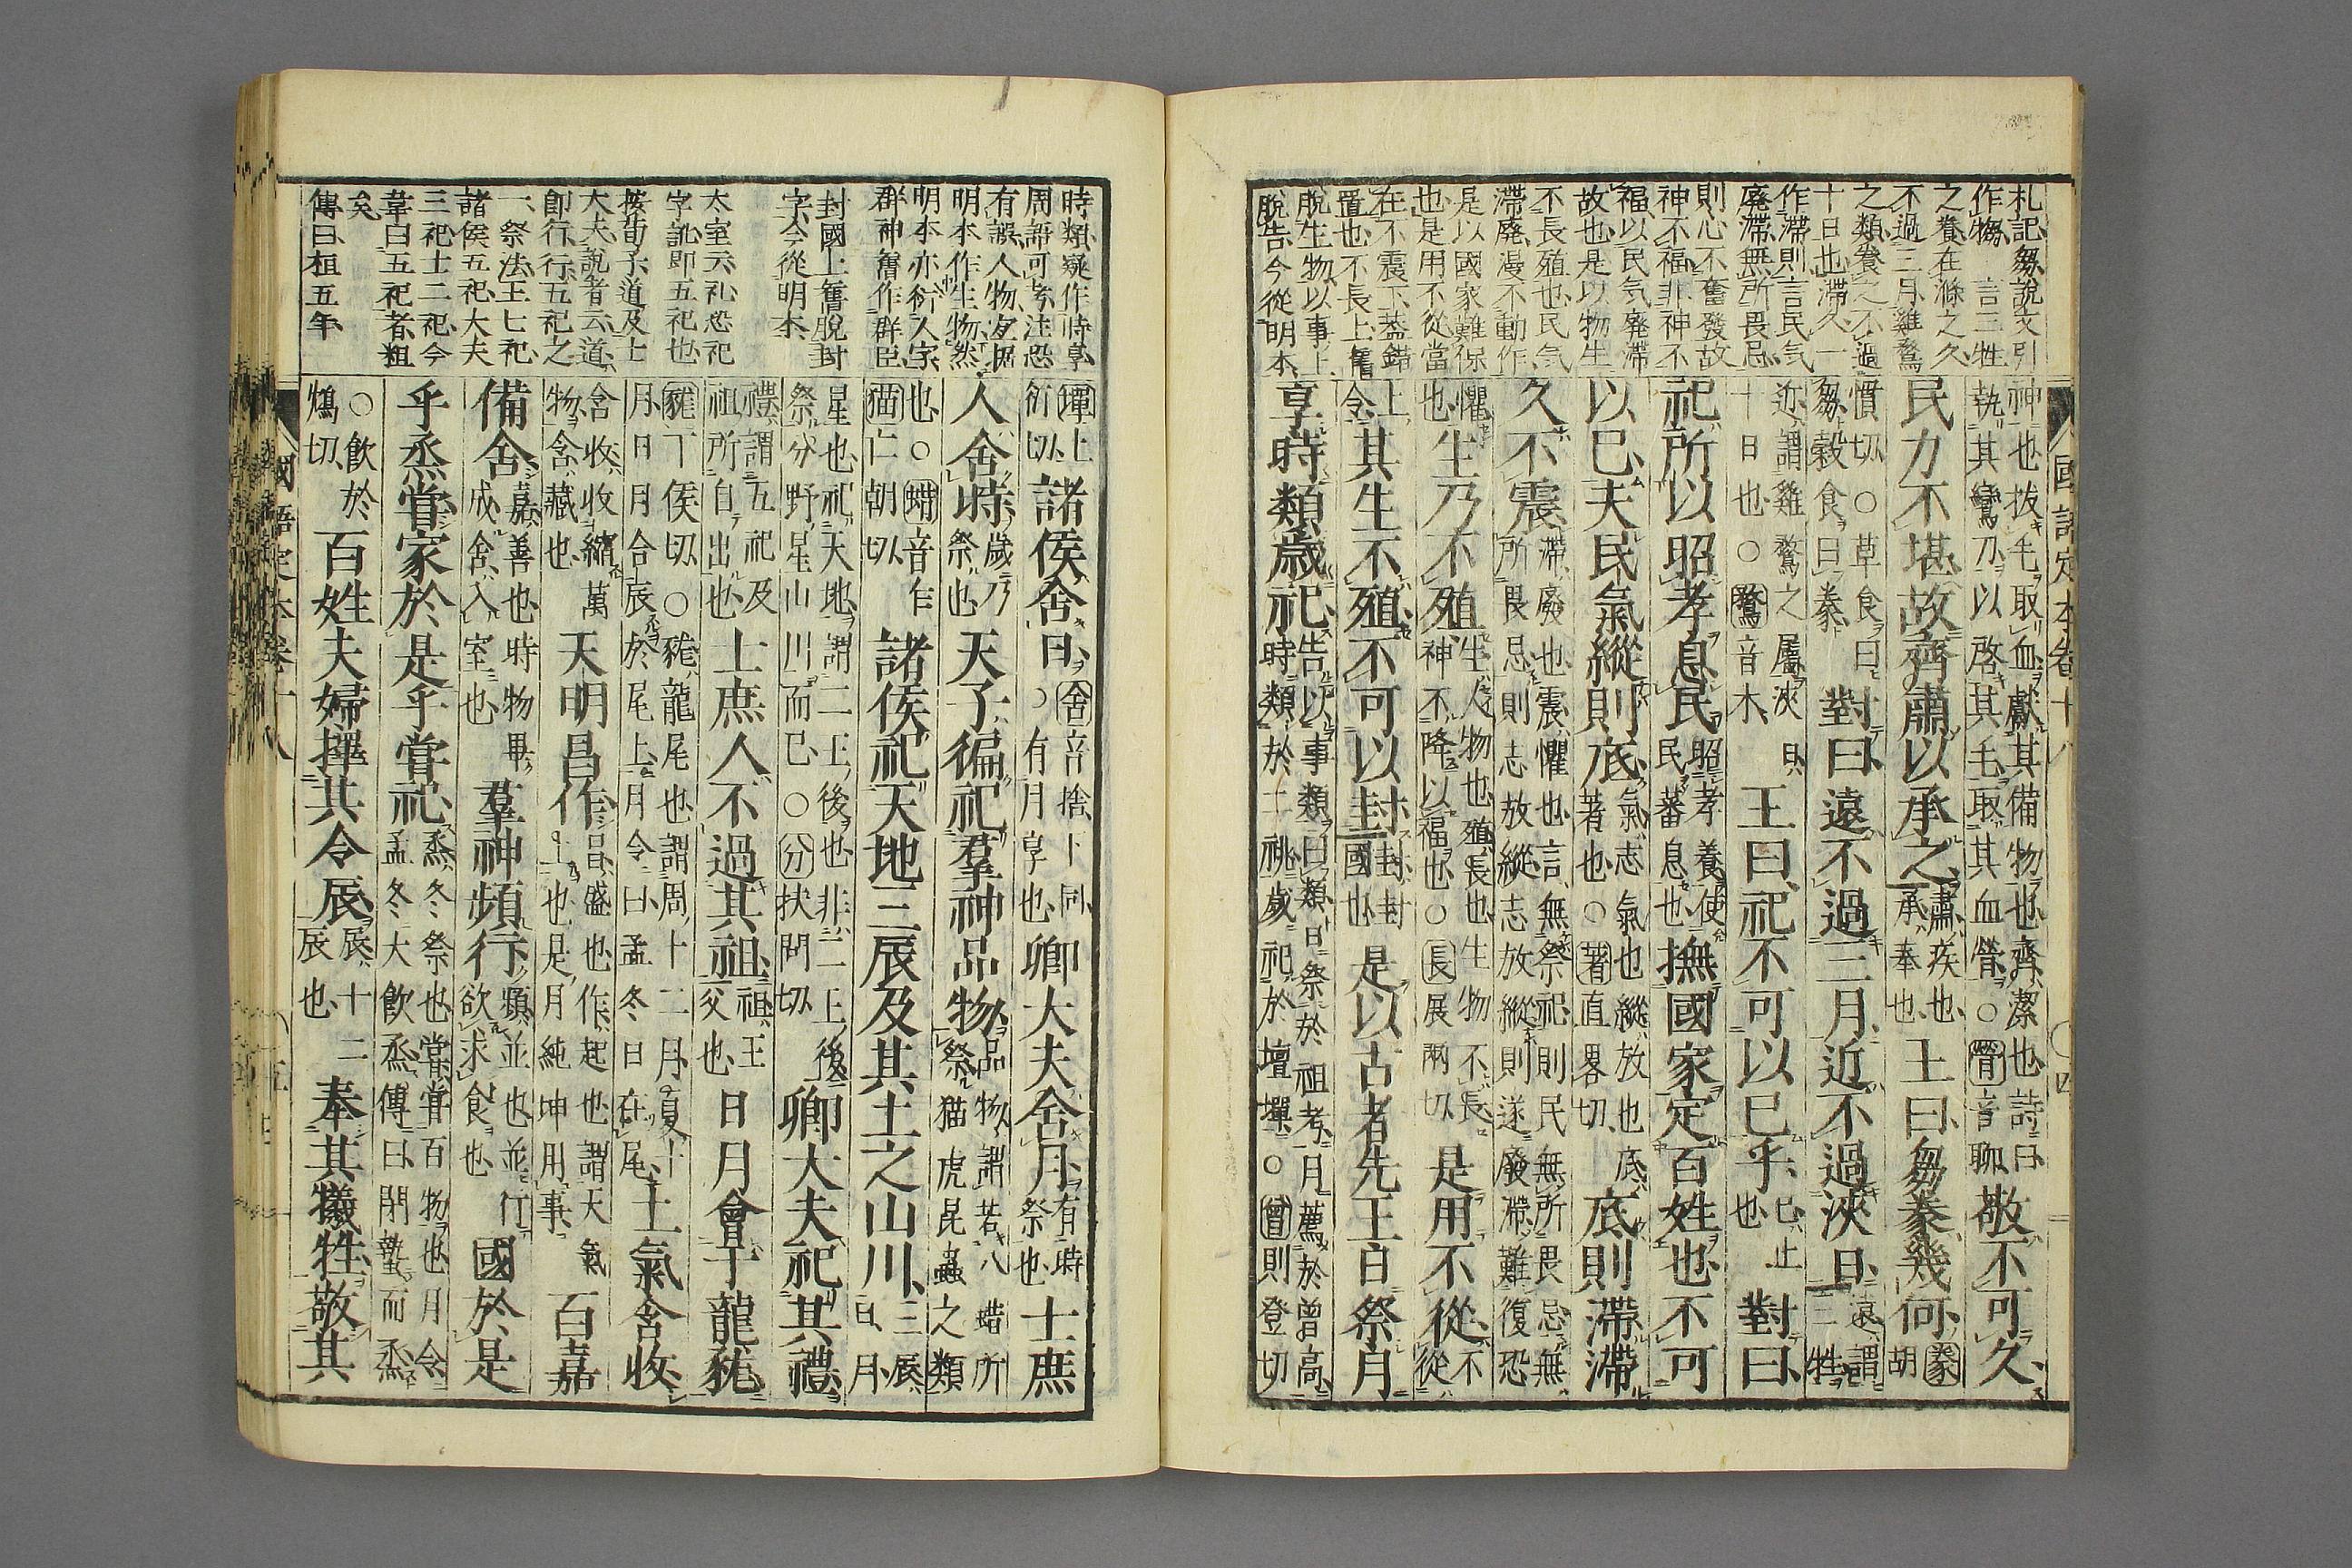 札記芻說文引
作物 言三牲
之養在滌之久
不過三月雞鶩
之類養之不過
十日也滯久一
作滯則言民気
廃滯無所畏忌
則心不奮發故
神不福非神不
福以民気廃滯
故也是以物生
不長殖也民気
滯廃漫不動作
是以國家難保
也是用不從當
在不震下蓋錯
置也不長上舊
脫生物以事上
脫告今從明本
國語定本卷十八 ○四
神也拔毛取血獻其備物也齊潔也詩曰
執其鸞刀以啓其毛取其血膋○膋音聊
敬不可久
民力不堪故齊肅以承之
肅疾也
承奉也
王曰芻豢幾何
豢
胡
慣切○草食曰
芻穀食曰豢
對曰遠不過三月近不過浹日
遠謂
三牲
近謂雞鶩之屬浹日
十日也○鶩音木
王曰祀不可以已乎
已止
也
對曰
祀所以昭孝息民
昭孝養使
民蕃息也
撫國家定百姓也不可
以已夫民氣縱則底
氣志氣也縱放也底
著也○著直畧切
底則滯滯
久不震
滯廢也震懼也言無祭祀則民無所畏忌無
所畏忌則志放縱志放縱則遂廢滯難復恐
懼
也
生乃不殖
生人物也殖長也生物不長
神不降以福也○長展兩切
是用不從
不
從
上
令
其生不殖不可以封
封封
國也
是以古者先王日祭月
享時類歲祀
告以事類曰類日祭於祖考月薦於曾高
時類於二祧歲祀於壇墠○曾則登切
時類疑作時享
周語可考注恐
有誤人物宜据
明本作生物然
明本亦衍人字
群神舊作群臣
封國上舊脫封
字今從明本
太室云礼恐祀
字訛即五祀也
按荀子道及士
大夫說者云道
即行行五祀之
一祭法王七祀
諸侯五祀大夫
三祀士二祀今
韋曰五祀者粗
矣
傳曰桓五年
墠上
衍切
諸侯舍日
舍音捨下同
○有月享也
卿大夫舍月
有時
祭也
士庶
人舍時
歲乃
祭也
天子徧祀羣神品物
品物謂若八蜡所
祭猫虎昆蟲之類
也○蜡音乍
猫亡朝切
諸侯祀天地三辰及其土之山川
三辰
日月
星也祀天地謂二王後也非二王後
祭分野星山川而已○分扶問切
卿大夫祀其禮
禮謂五祀及
祖所自出也
士庶人不過其祖
祖王
父也
日月會于龍豵
豵丁侯切○豵龍尾也謂周十二月夏十
月日月合辰於尾上月令曰孟冬日在尾
土氣含收
含收收縮萬
物含藏也
天明昌作
昌盛也作起也謂天氣
上也是月純坤用事
百嘉
備舍
嘉善也時物畢
成舍入室也
羣神頻行
頻並也並行
欲求食也
國於是
乎烝嘗家於是乎嘗祀
烝冬祭也嘗嘗百物也月令
孟冬大飲烝傳曰閉蟄而烝
○飲於
鴆切
百姓夫婦擇其令辰
辰十二
辰也
奉其犧牲敬其
國語定本卷十八 ○五